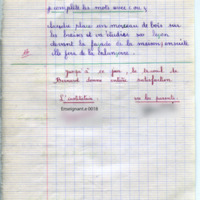 complète les mots avec : ou ;
place un morceau de bois sur
les braises et va étudier sa leçon
devant la façade de la maison, ensuite
elle fera de la balançoire.
jusqu'à ce jour, le travail de
donne entière satisfaction
L'institutrice ou les parents
Enseignant.e 0016